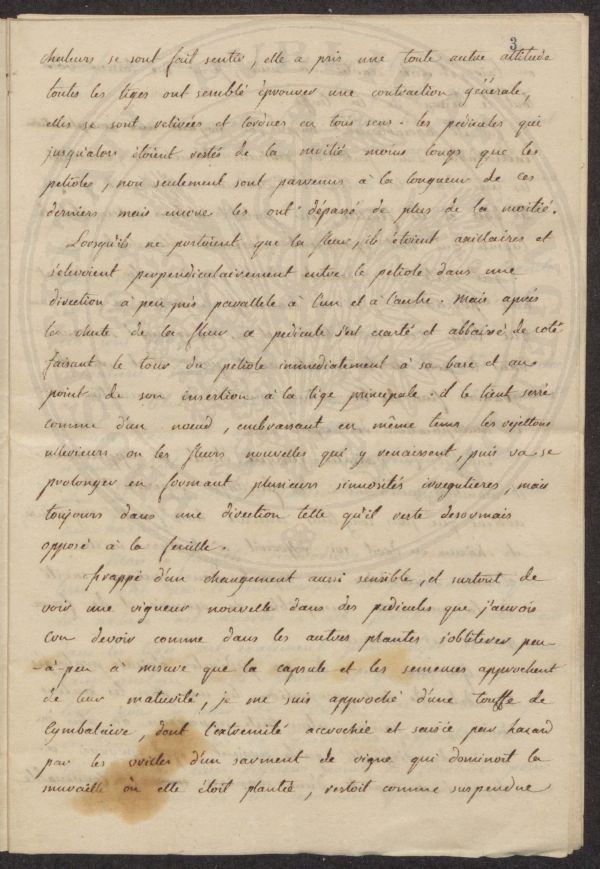 3
chaleurs se sont fait sentir, elle a pris une toute autre attitude
toutes les tiges ont semblé éprouver une contraction générale,
elles se sont retirées et tordues en tous sens. les pedicules qui
jusqu'alors étoient restés de la moitié moins longs que les
petioles, non seulement sont parvenus à la longueur de ces
derniers mais encore les ont dépassé de plus de la moitié.
Lorsqu'ils ne portaient que la fleur, ils étoient axillaires et
s'élevoient perpendiculairement entre le petiole dans une
direction à peu près parallele à l'un et à l'autre. Mais après
la chute de la fleur ce pedicule s'est écarté et abbaissé de coté
faisant le tour du petiole immediatement à sa base et au
point de son insertion à la tige principale. il le tient serré
comme d'un nœud, embrassant en même tems les rejettons
ulterieurs ou les fleurs nouvelles qui y renaissent, puis va se
prolonger en formant plusieurs sinuosités irregulieres, mais
toujours dans une direction telle qu'il reste desormais
opposé à la feuille.
frappé d'un changement aussi sensible, et surtout de
voir une vigueur nouvelle dans des pedicules que j'aurois
cru devoir comme dans les autres plantes s'obliterer peu-
-à-peu à mesure que la capsule et les semences approchent
de leur maturité, je me suis approché d'une touffe de
Cymbalaire, dont l'extremité accrochée et saisie par hazard
par les vrilles d'un sarment de vigne qui dominoit la
muraille où elle étoit plantée, restoit comme suspendue